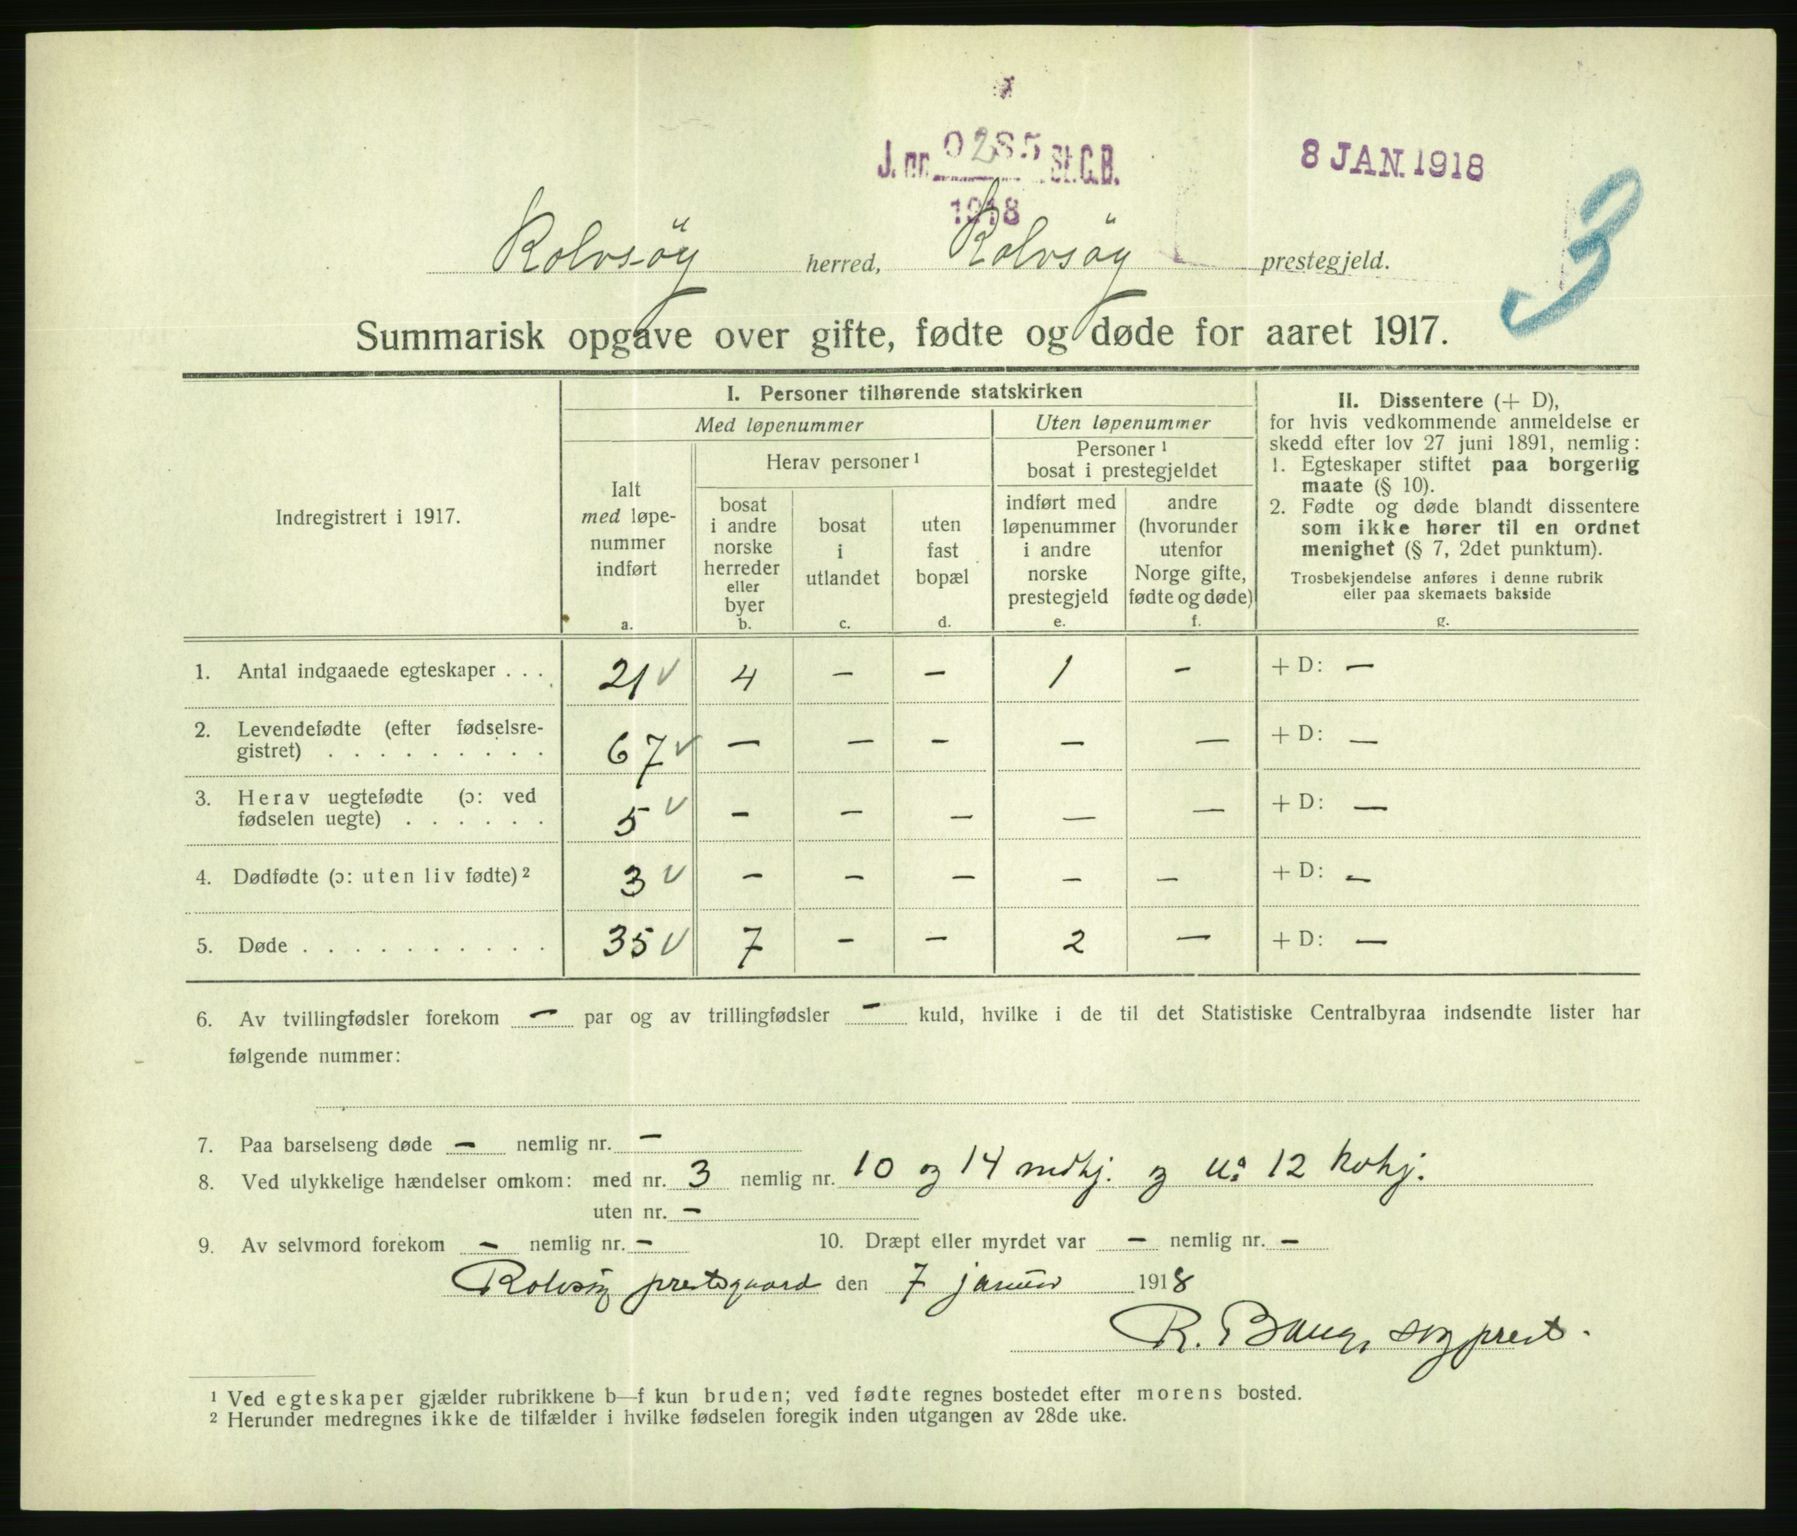 J. nr. 0285 St.C.B.
1918
8 JAN. 1918
3
Rolvsöy herred, Rolvsöy prestegjeld.
Summarisk opgave over gifte, fødte og døde for aaret 1917.
Indregistrert i 1917.
I. Personer tilhørende statskirken
Med løpenummer
Uten løpenummer
Ialt
med løpe-
nummer
indført
a.
Herav personer ¹
bosat
i andre
norske
herreder
eller
byer
b.
bosat
i
utlandet
c.
uten
fast
bopæl
d.
Personer ¹
bosat i prestegjeldet
indført med
løpenummer
i andre
norske
prestegjeld
e.
andre
(hvorunder
utenfor
Norge gifte,
fødte og døde)
f.
II. Dissentere (+ D),
for hvis vedkommende anmeldelse er
skedd efter lov 27 juni 1891, nemlig:
1. Egteskaper stiftet paa borgerlig
maate (§ 10).
2. Fødte og døde blandt dissentere
som ikke hører til en ordnet
menighet (§ 7, 2det punktum).
Trosbekjendelse anføres i denne rubrik
eller paa skemaets bakside
g.
1. Antal indgaaede egteskaper . . . 21 √ 4 — — 1 — + D: —
2. Levendefødte (efter fødselsre-
gistret) . . . . . . . . . 67 √ — — — — — + D: —
3. Herav uegtefødte (ɔ: ved
fødselen uegte) . . . . . . 5 √ — — — — — + D: —
4. Dødfødte (ɔ: uten liv fødte) ² 3 √ — — — — — + D: —
5. Døde . . . . . . . . . . 35 √ 7 — — 2 — + D: —
6. Av tvillingfødsler forekom — par og av trillingfødsler — kuld, hvilke i de til det Statistiske Centralbyraa indsendte lister har
følgende nummer:
7. Paa barselseng døde — nemlig nr. —
8. Ved ulykkelige hændelser omkom: med nr. 3 nemlig nr. 10 og 14 mdkj. og 12 kvkj.
uten nr. —
9. Av selvmord forekom — nemlig nr. — 10. Dræpt eller myrdet var — nemlig nr. —
Rolvsöy prestegaard den 7 januar 1918
R. Bang, sogneprest.
¹ Ved egteskaper gjælder rubrikkene b—f kun bruden; ved fødte regnes bostedet efter morens bosted.
² Herunder medregnes ikke de tilfælder i hvilke fødselen foregik inden utgangen av 28de uke.